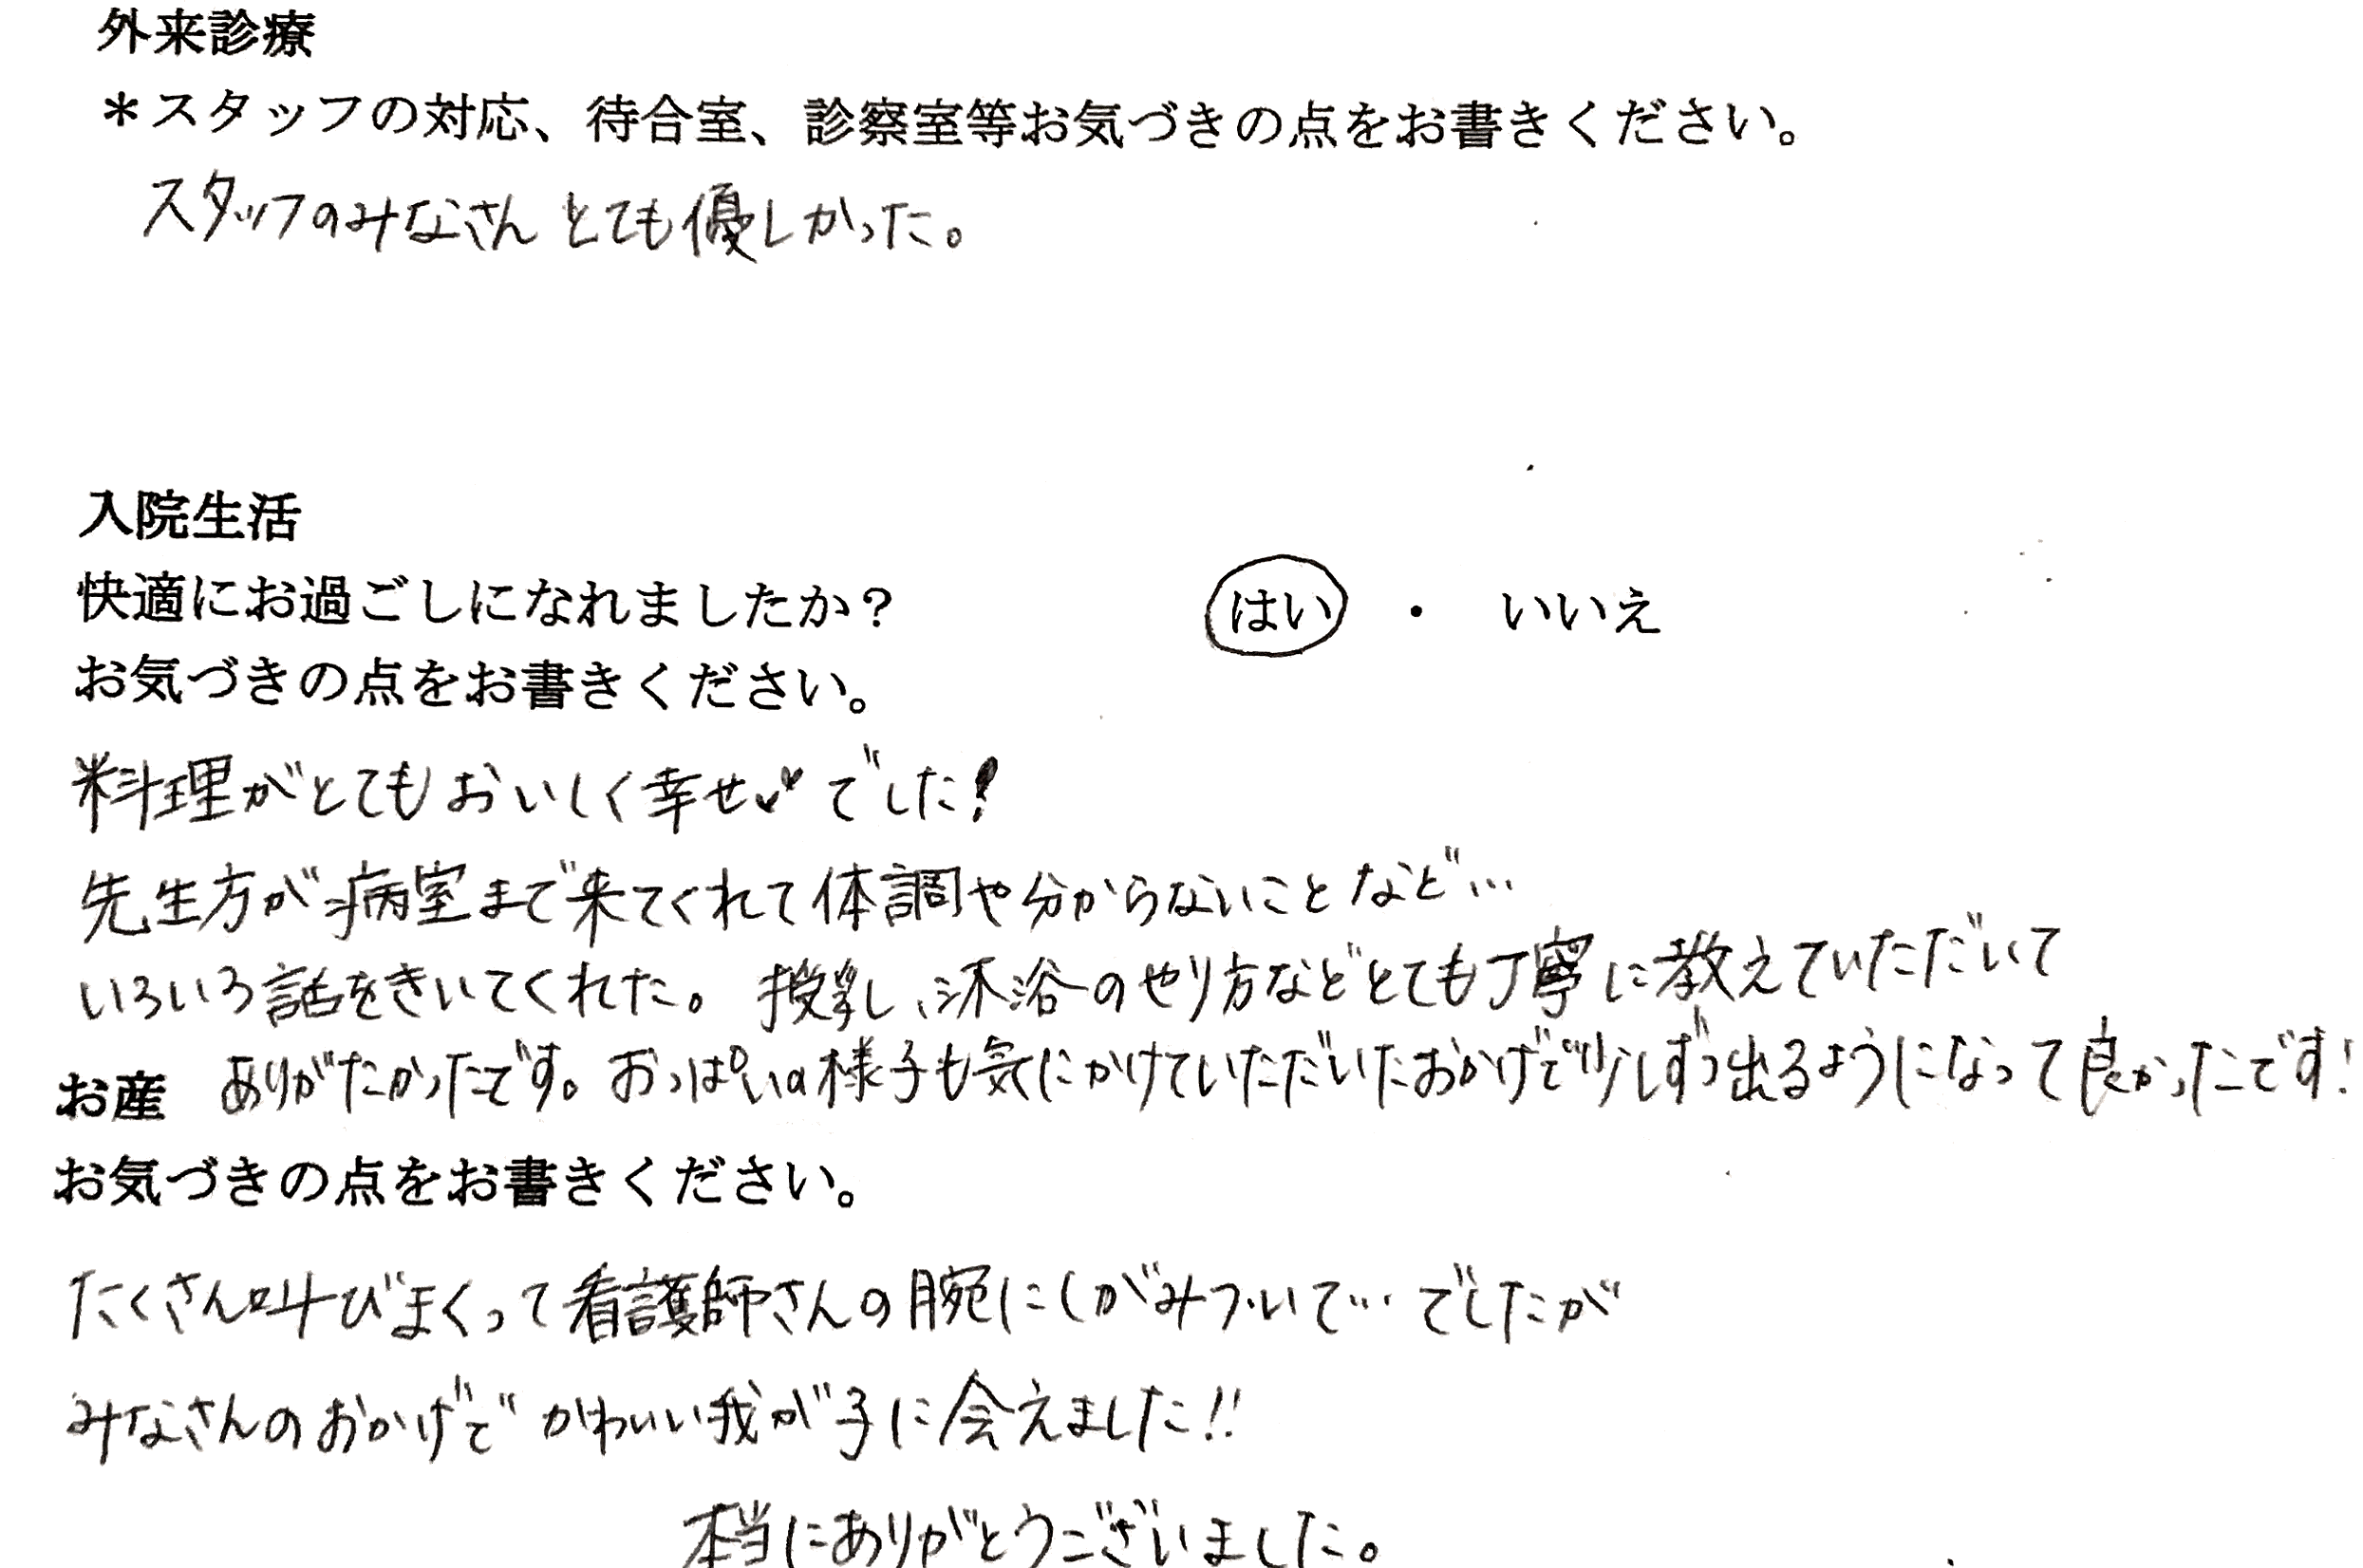 外来診療
＊スタッフの対応、待合室、診察室等お気づきの点をお書きください。
スタッフのみなさん とても優しかった。
入院生活
快適にお過ごしになれましたか？ はい ・ いいえ
お気づきの点をお書きください。
料理がとてもおいしく幸せ♥♥でした！
先生方が病室まで来てくれて体調や分からないことなど…
いろいろ話をきいてくれた。授乳、沐浴のやり方などとても丁寧に教えていただいて
ありがたかったです。おっぱいの様子も気にかけていただいたおかげで少しずつ出るようになって良かったです！
お産
お気づきの点をお書きください。
たくさん叫びまくって看護師さんの腕にしがみついて…でしたが
みなさんのおかげで かわいい我が子に会えました!!
本当にありがとうございました。